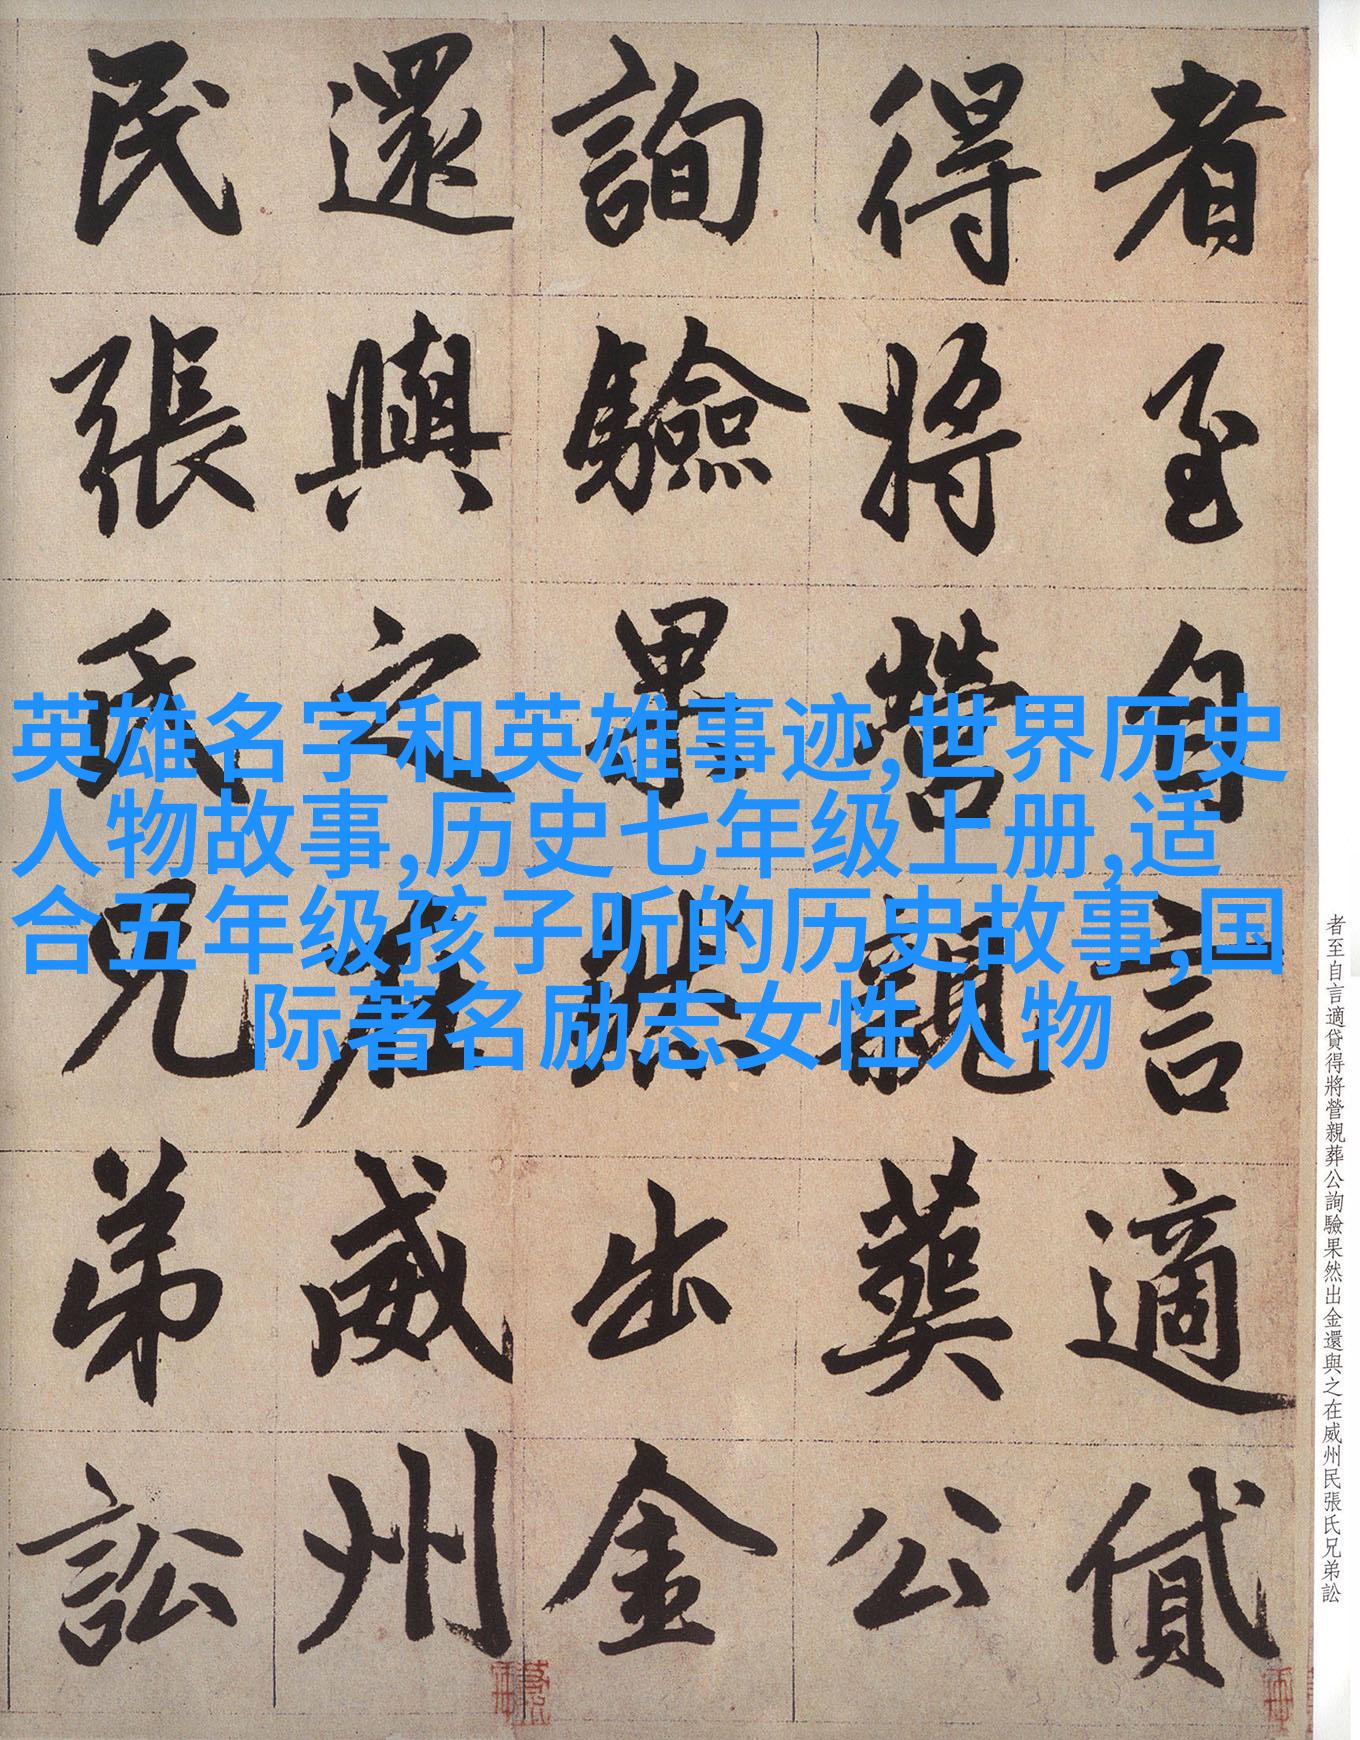 者至自言適貸
得將營親葬公
詢驗果然出金
還與之在威州
民張氏兄弟訟
英雄名字和英雄事迹,世界历史
人物故事,历史七年级上册,适
合五年级孩子听的历史故事,国
际著名励志女性人物
者至自言適貸得將營親葬公詢驗果然出金還與之在威州民張氏兄弟訟